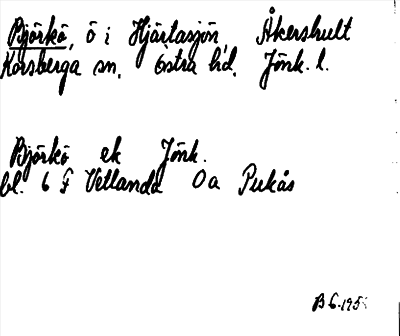 Björkö, ö i Hjärtasjön, Åkershult
Korsberga sn. Östra hd. Jönk. l.
Björkö ek Jönk.
bl. 6 F Vetlanda 0a Pukås
B 6.195